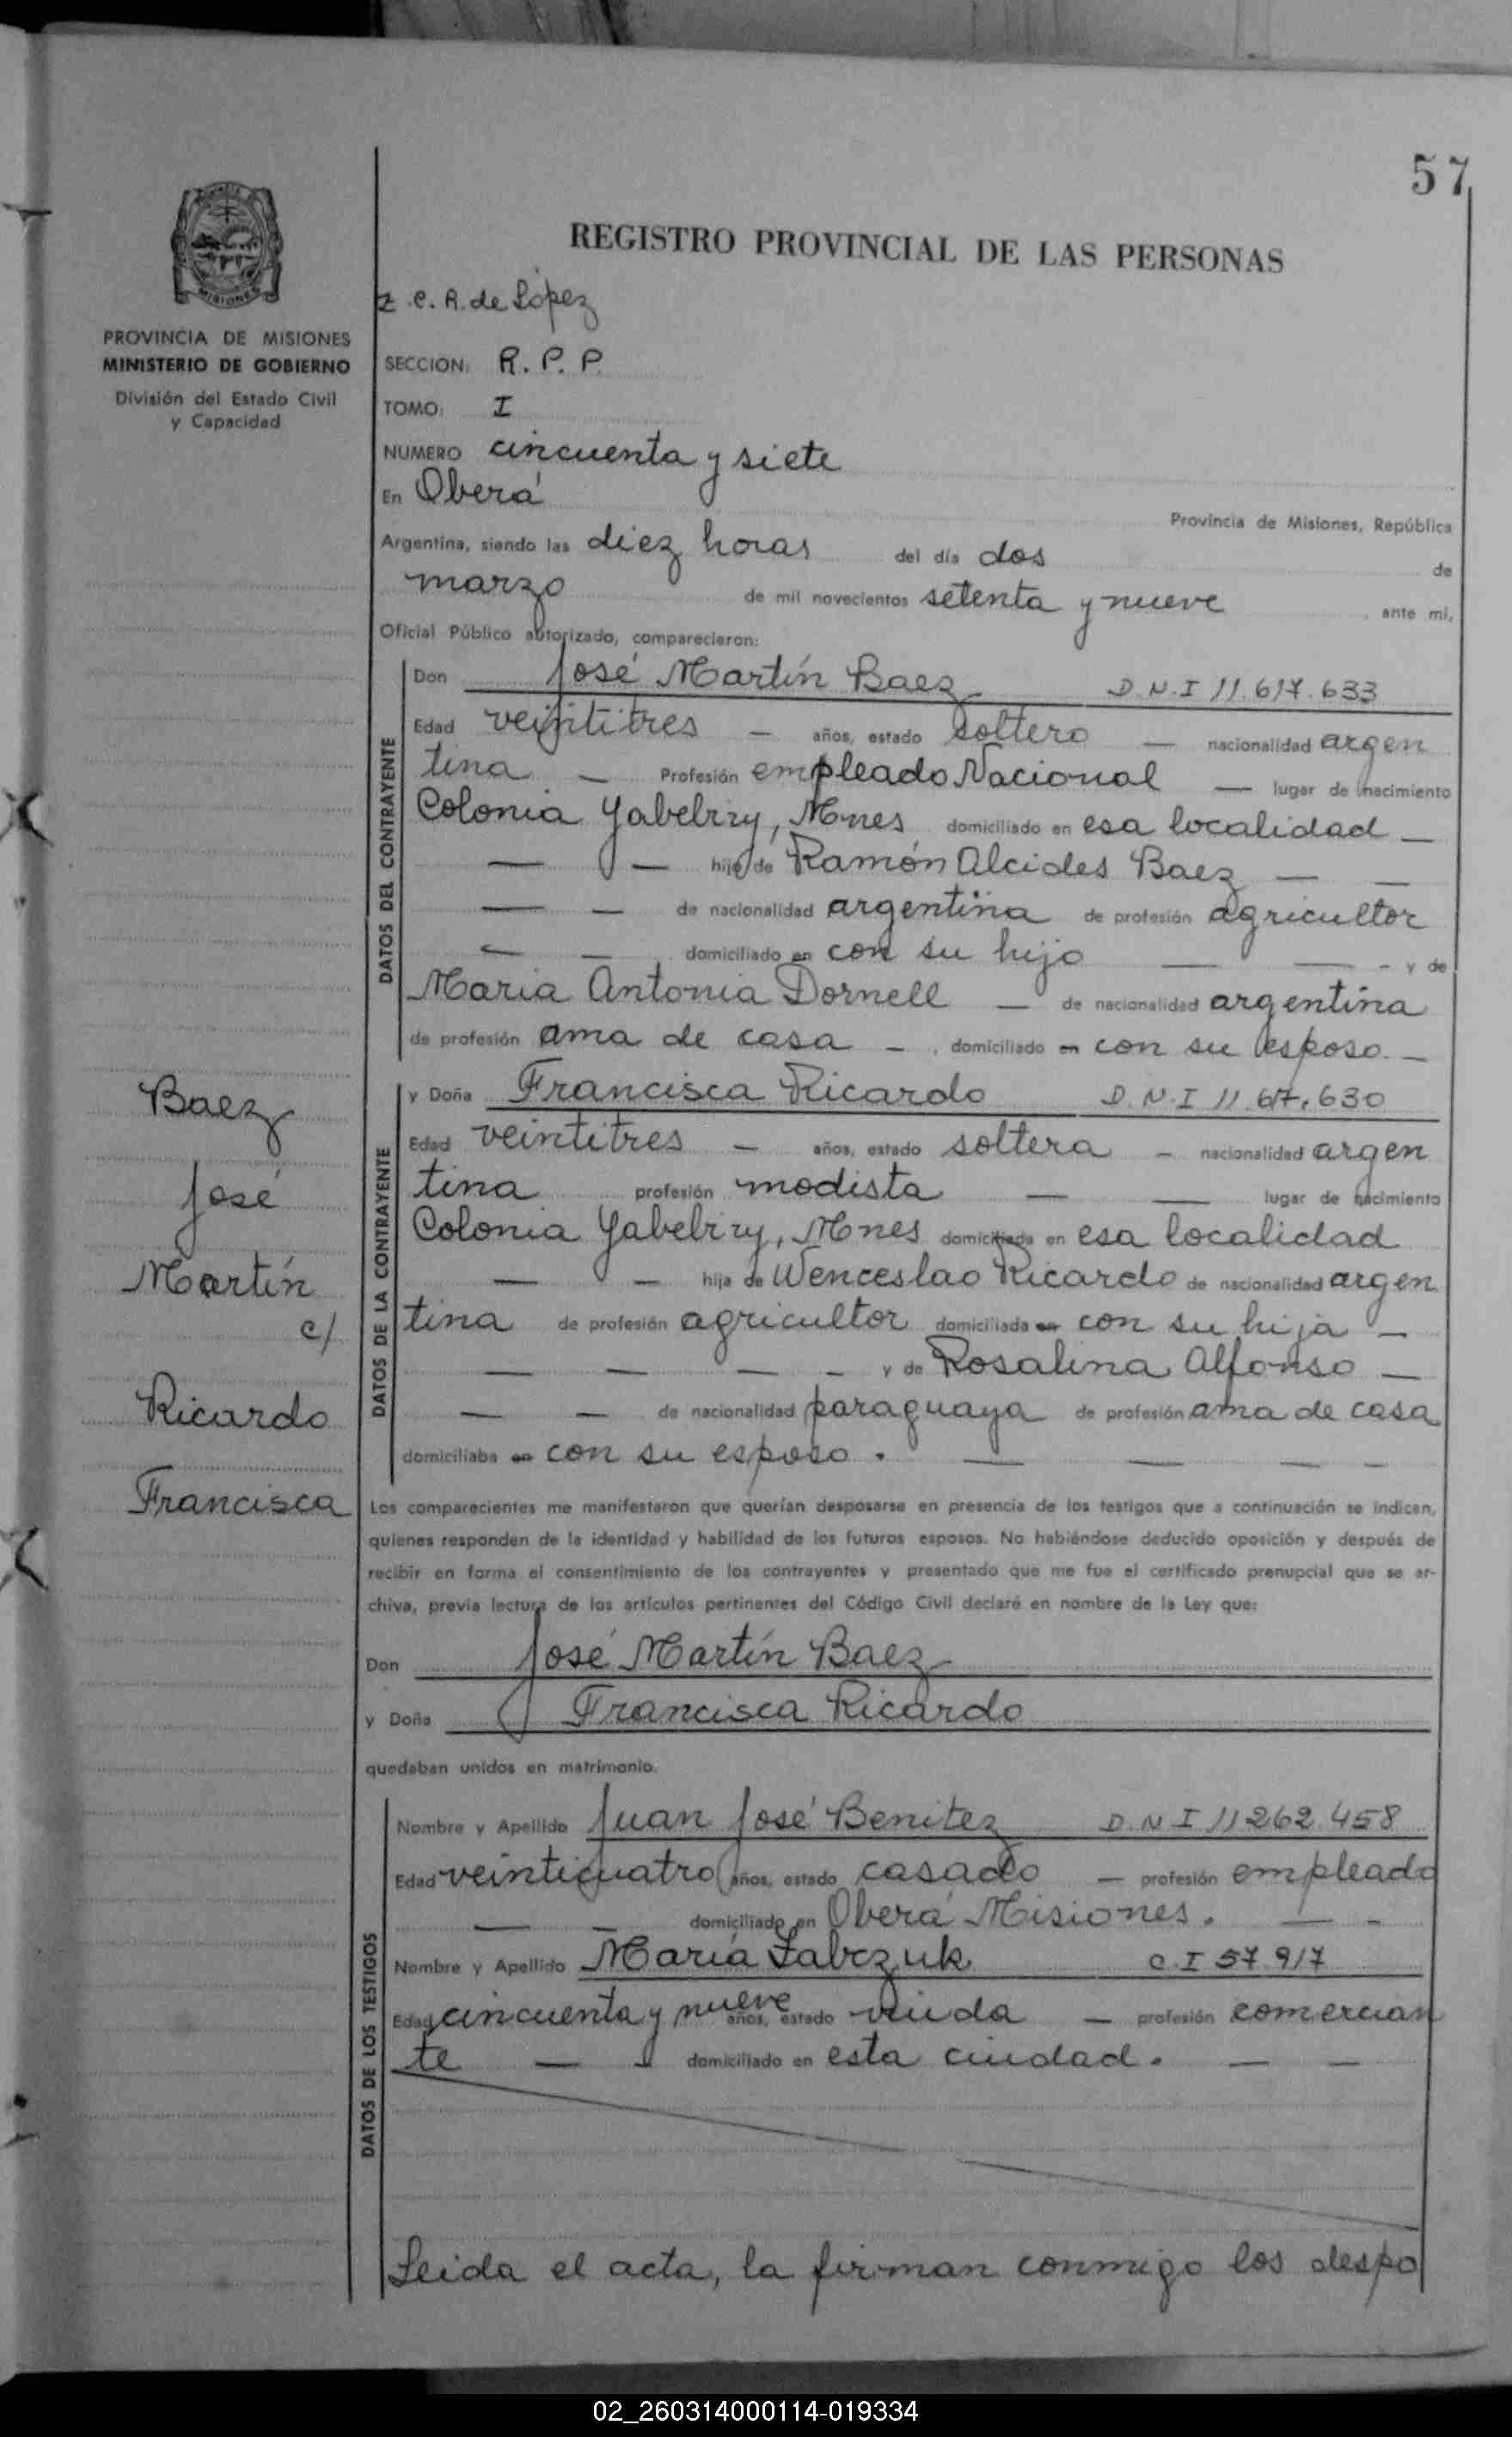 57
REGISTRO PROVINCIAL DE LAS PERSONAS
MISIONES
PROVINCIA DE MISIONES
MINISTERIO DE GOBIERNO
División del Estado Civil
y Capacidad
Z.C.R. de López
SECCION: R. P. P.
TOMO: I
NUMERO cincuenta y siete
En Oberá
Provincia de Misiones, República
Argentina, siendo las diez horas del día dos de
marzo de mil novecientos setenta y nueve, ante mí,
Oficial Público autorizado, comparecieron:
DATOS DEL CONTRAYENTE
Don José Martín Baez D.N.I 11.617.633
Edad veintitres — años, estado soltero — nacionalidad argen
tina — Profesión empleado Nacional — lugar de nacimiento
Colonia Yabebiry, Mnes domiciliado en esa localidad —
— — hijo de Ramón Alcides Baez — —
— — de nacionalidad argentina de profesión agricultor
— — , domiciliado en con su hijo — — - y de
Maria Antonia Dornell — de nacionalidad argentina
de profesión ama de casa — , domiciliado en con su esposo. —
DATOS DE LA CONTRAYENTE
y Doña Francisca Ricardo D.N.I 11.617.630
Edad veintitres — años, estado soltera — nacionalidad argen
tina profesión modista — — lugar de nacimiento
Colonia Yabebiry, Mnes domiciliada en esa localidad
— — hija de Wenceslao Ricardo de nacionalidad argen
tina de profesión agricultor domiciliada en con su hija —
— — — — y de Rosalina Alfonso —
— — de nacionalidad paraguaya de profesión ama de casa
domiciliaba en con su esposo. — — — —
Baez
José
Martín
c/
Ricardo
Francisca
Los comparecientes me manifestaron que querían desposarse en presencia de los testigos que a continuación se indican,
quienes responden de la identidad y habilidad de los futuros esposos. No habiéndose deducido oposición y después de
recibir en forma el consentimiento de los contrayentes y presentado que me fue el certificado prenupcial que se ar-
chiva, previa lectura de los artículos pertinentes del Código Civil declaré en nombre de la Ley que:
Don José Martín Baez
y Doña Francisca Ricardo
quedaban unidos en matrimonio.
DATOS DE LOS TESTIGOS
Nombre y Apellido Juan José Benitez D.N.I 11262.458
Edad veinticuatro años, estado casado — profesión empleado
— — domiciliado en Oberá Misiones. — —
Nombre y Apellido María Labczuk C.I 57.917
Edad cincuenta y nueve años, estado viuda — profesión comercian
te — — domiciliado en esta ciudad. — —
Leida el acta, la firman conmigo los despo
02_260314000114-019334